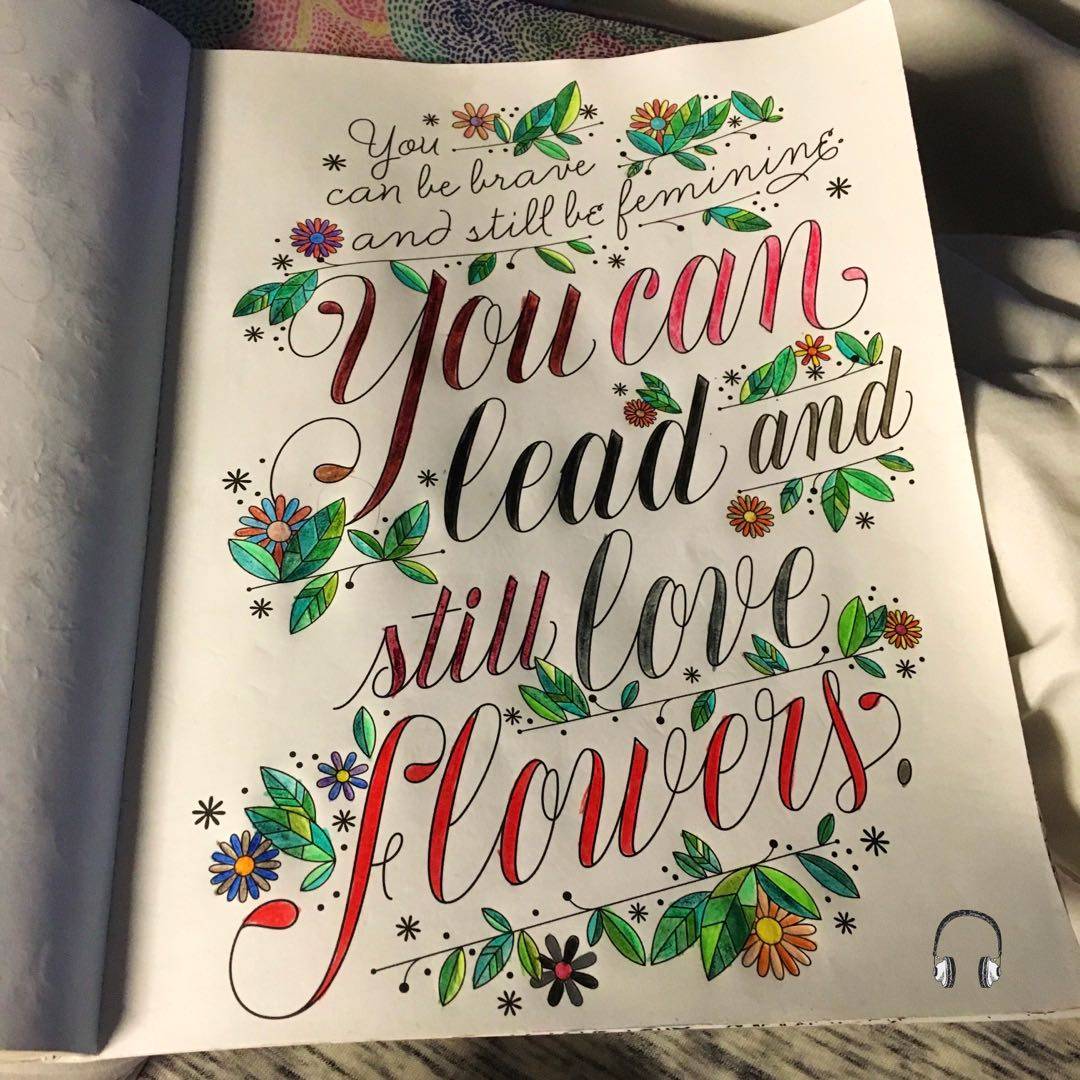 You
can be brave
and still be feminine
You can
lead and
still love
flowers.